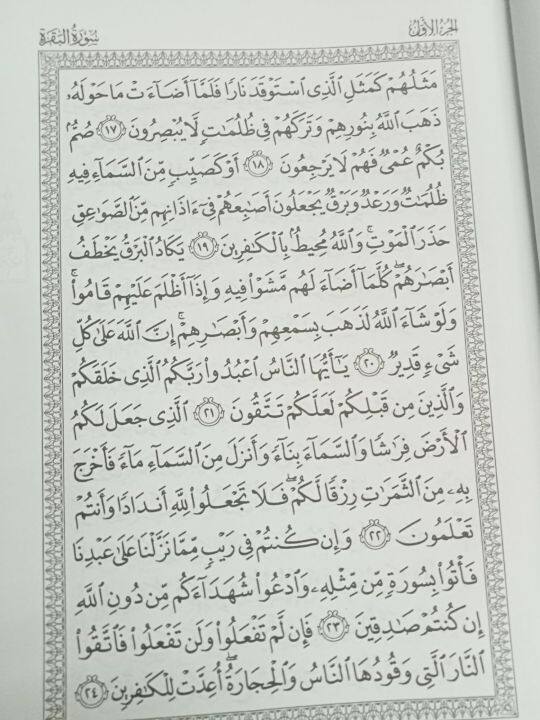 الجزء الأول
سورة البقرة
مَثَلُهُمْ كَمَثَلِ الَّذِى اسْتَوْقَدَ نَارًا فَلَمَّآ أَضَآءَتْ مَا حَوْلَهُۥ
ذَهَبَ اللَّهُ بِنُورِهِمْ وَتَرَكَهُمْ فِى ظُلُمَٰتٍ لَّا يُبْصِرُونَ ١٧ صُمٌّۢ
بُكْمٌ عُمْىٌ فَهُمْ لَا يَرْجِعُونَ ١٨ أَوْ كَصَيِّبٍ مِّنَ السَّمَآءِ فِيهِ
ظُلُمَٰتٌ وَرَعْدٌ وَبَرْقٌ يَجْعَلُونَ أَصَٰبِعَهُمْ فِىٓ ءَاذَانِهِم مِّنَ الصَّوَٰعِقِ
حَذَرَ الْمَوْتِ ۚ وَاللَّهُ مُحِيطٌۢ بِالْكَٰفِرِينَ ١٩ يَكَادُ الْبَرْقُ يَخْطَفُ
أَبْصَٰرَهُمْ ۖ كُلَّمَآ أَضَآءَ لَهُم مَّشَوْا۟ فِيهِ وَإِذَآ أَظْلَمَ عَلَيْهِمْ قَامُوا۟ ۚ
وَلَوْ شَآءَ اللَّهُ لَذَهَبَ بِسَمْعِهِمْ وَأَبْصَٰرِهِمْ ۚ إِنَّ اللَّهَ عَلَىٰ كُلِّ
شَىْءٍ قَدِيرٌ ٢٠ يَٰٓأَيُّهَا النَّاسُ اعْبُدُوا۟ رَبَّكُمُ الَّذِى خَلَقَكُمْ
وَالَّذِينَ مِن قَبْلِكُمْ لَعَلَّكُمْ تَتَّقُونَ ٢١ الَّذِى جَعَلَ لَكُمُ
الْأَرْضَ فِرَٰشًا وَالسَّمَآءَ بِنَآءً وَأَنزَلَ مِنَ السَّمَآءِ مَآءً فَأَخْرَجَ
بِهِۦ مِنَ الثَّمَرَٰتِ رِزْقًا لَّكُمْ ۖ فَلَا تَجْعَلُوا۟ لِلَّهِ أَندَادًا وَأَنتُمْ
تَعْلَمُونَ ٢٢ وَإِن كُنتُمْ فِى رَيْبٍ مِّمَّا نَزَّلْنَا عَلَىٰ عَبْدِنَا
فَأْتُوا۟ بِسُورَةٍ مِّن مِّثْلِهِۦ وَادْعُوا۟ شُهَدَآءَكُم مِّن دُونِ اللَّهِ
إِن كُنتُمْ صَٰدِقِينَ ٢٣ فَإِن لَّمْ تَفْعَلُوا۟ وَلَن تَفْعَلُوا۟ فَاتَّقُوا۟
النَّارَ الَّتِى وَقُودُهَا النَّاسُ وَالْحِجَارَةُ ۖ أُعِدَّتْ لِلْكَٰفِرِينَ ٢٤